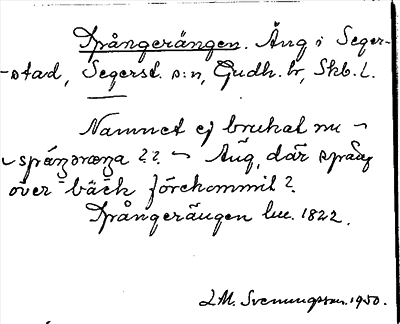 Spångerängen. Äng i Seger-
-stad, Segerst. s:n, Gudh. hr, Skb. l.
Namnet ej brukat nu –
Äng, där spång
över bäck förekommit?
Spångerängen lm. 1822.
L.M. Svenungsson. 1950.